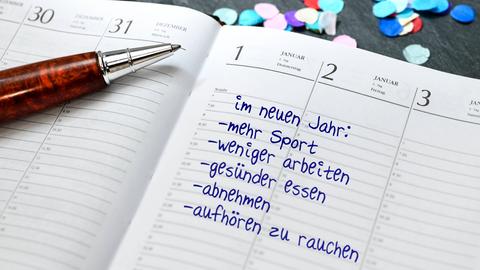 30
DEZEMBER
31
DEZEMBER
1
JANUAR
Donnerstag
2
JANUAR
Freitag
3
im neuen Jahr:
-mehr Sport
-weniger arbeiten
-gesünder essen
-abnehmen
-aufhören zu rauchen